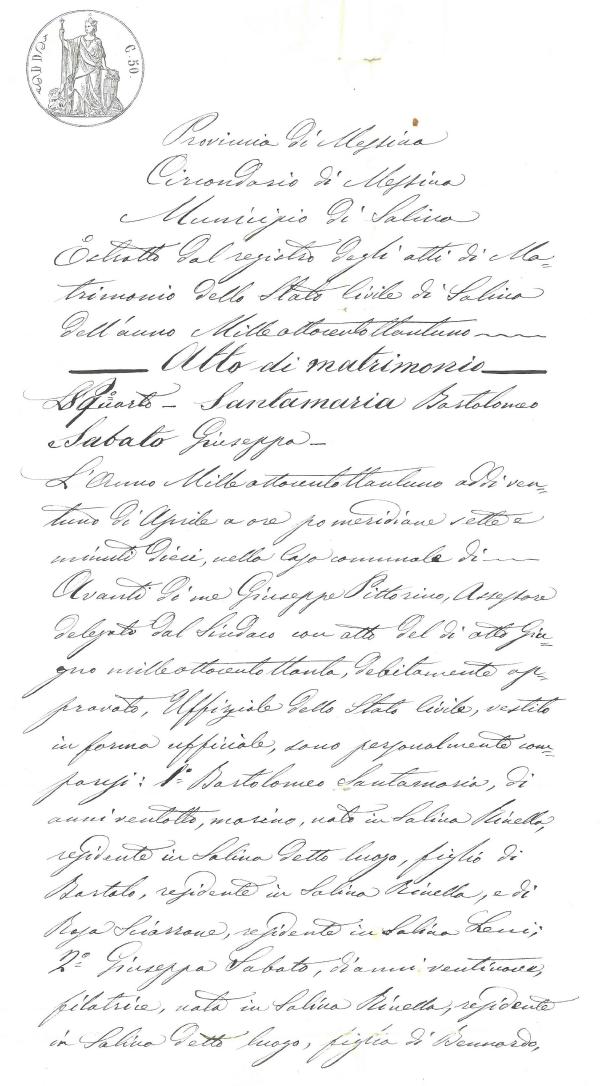 C. 50.
Provincia di Messina
Circondario di Messina
Municipio di Salina
Estratto dal registro degli atti di Ma=
trimonio dello Stato Civile di Salina
dell'anno Milleottocentottantuno
Atto di matrimonio
Quarto - Santamaria Bartolomeo
Sabato Giuseppa -
L'Anno Milleottocentottantuno addi ven=
tuno di Aprile a ore pomeridiane sette e
minuti dieci, nella Casa comunale di
Avanti di me Giuseppe Pittorino, Assessore
delegato dal Sindaco con atto del di otto Giu=
gno milleottocentottanta, debitamente ap=
provato, Uffiziale dello Stato Civile, vestito
in forma ufficiale, sono personalmente com=
parsi: 1° Bartolomeo Santamaria, di
anni ventotto, marino, nato in Salina Rinella,
residente in Salina detto luogo, figlio di
Bartolo, residente in Salina Rinella, e di
Rosa Sciarrone, residente in Salina Leni;
2° Giuseppa Sabato, di anni ventinove,
filatrice, nata in Salina Rinella, residente
in Salina detto luogo, figlia di Bennardo,